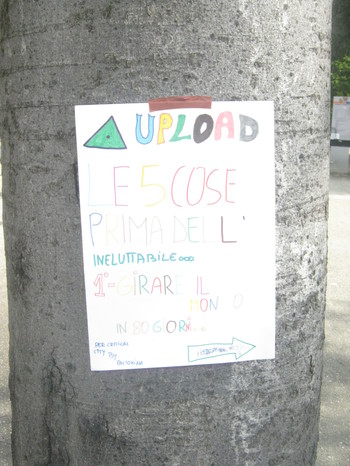 UPLOAD
LE 5 COSE
PRIMA DELL'
INELUTTABILE...
1°- GIRARE IL
MONDO
IN 80 GIORNI..